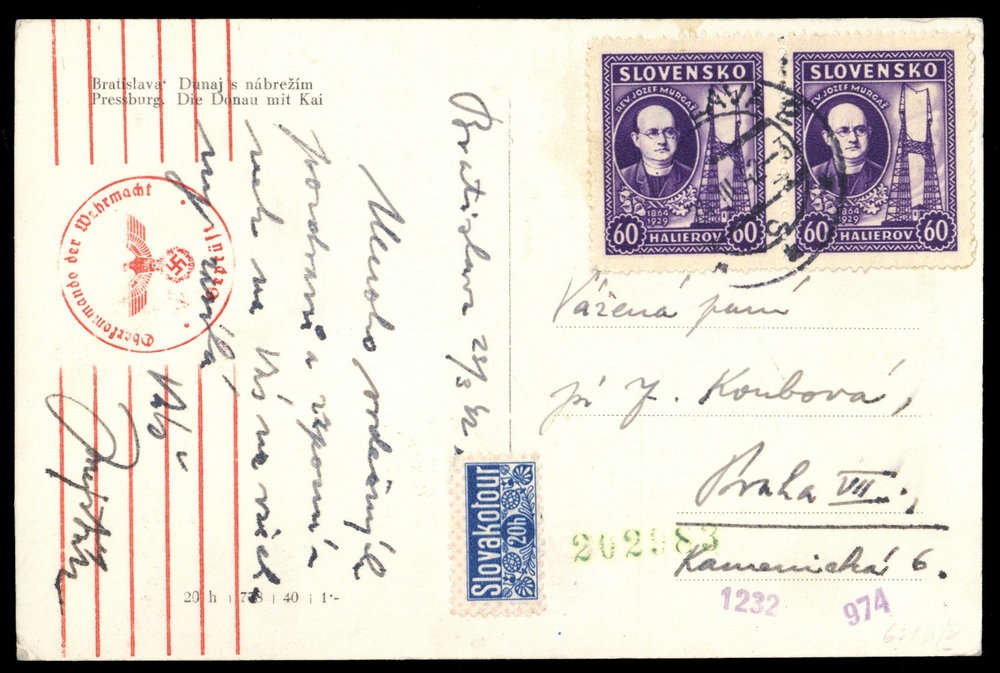 Bratislava: Dunaj s nábrežím
Pressburg. Die Donau mit Kai
Oberkommando der Wehrmacht
geprüft
Bratislava 28/3 42.
Mnoho srdečných
pozdravů a
na Vás
Váš
20 h | 778 | 40 | 1·-
Slovakotour
20h
SLOVENSKO
REV. JOZEF MURGAŠ
1864
1929
60 HALIEROV 60
SLOVENSKO
REV. JOZEF MURGAŠ
1864
1929
60 HALIEROV 60
Vážená paní
pí J. Koubová,
Praha VII.,
Kamenická 6.
202983
1232
974